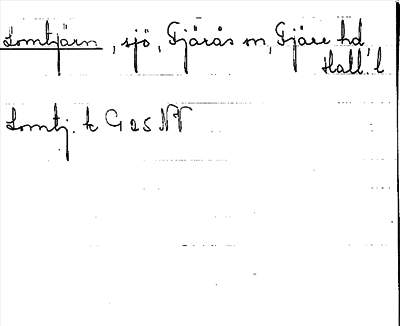 Lomtjärn, sjö, Fjärås sn, Fjäre hd
Hall. l
Lomtj. k G 25 NV